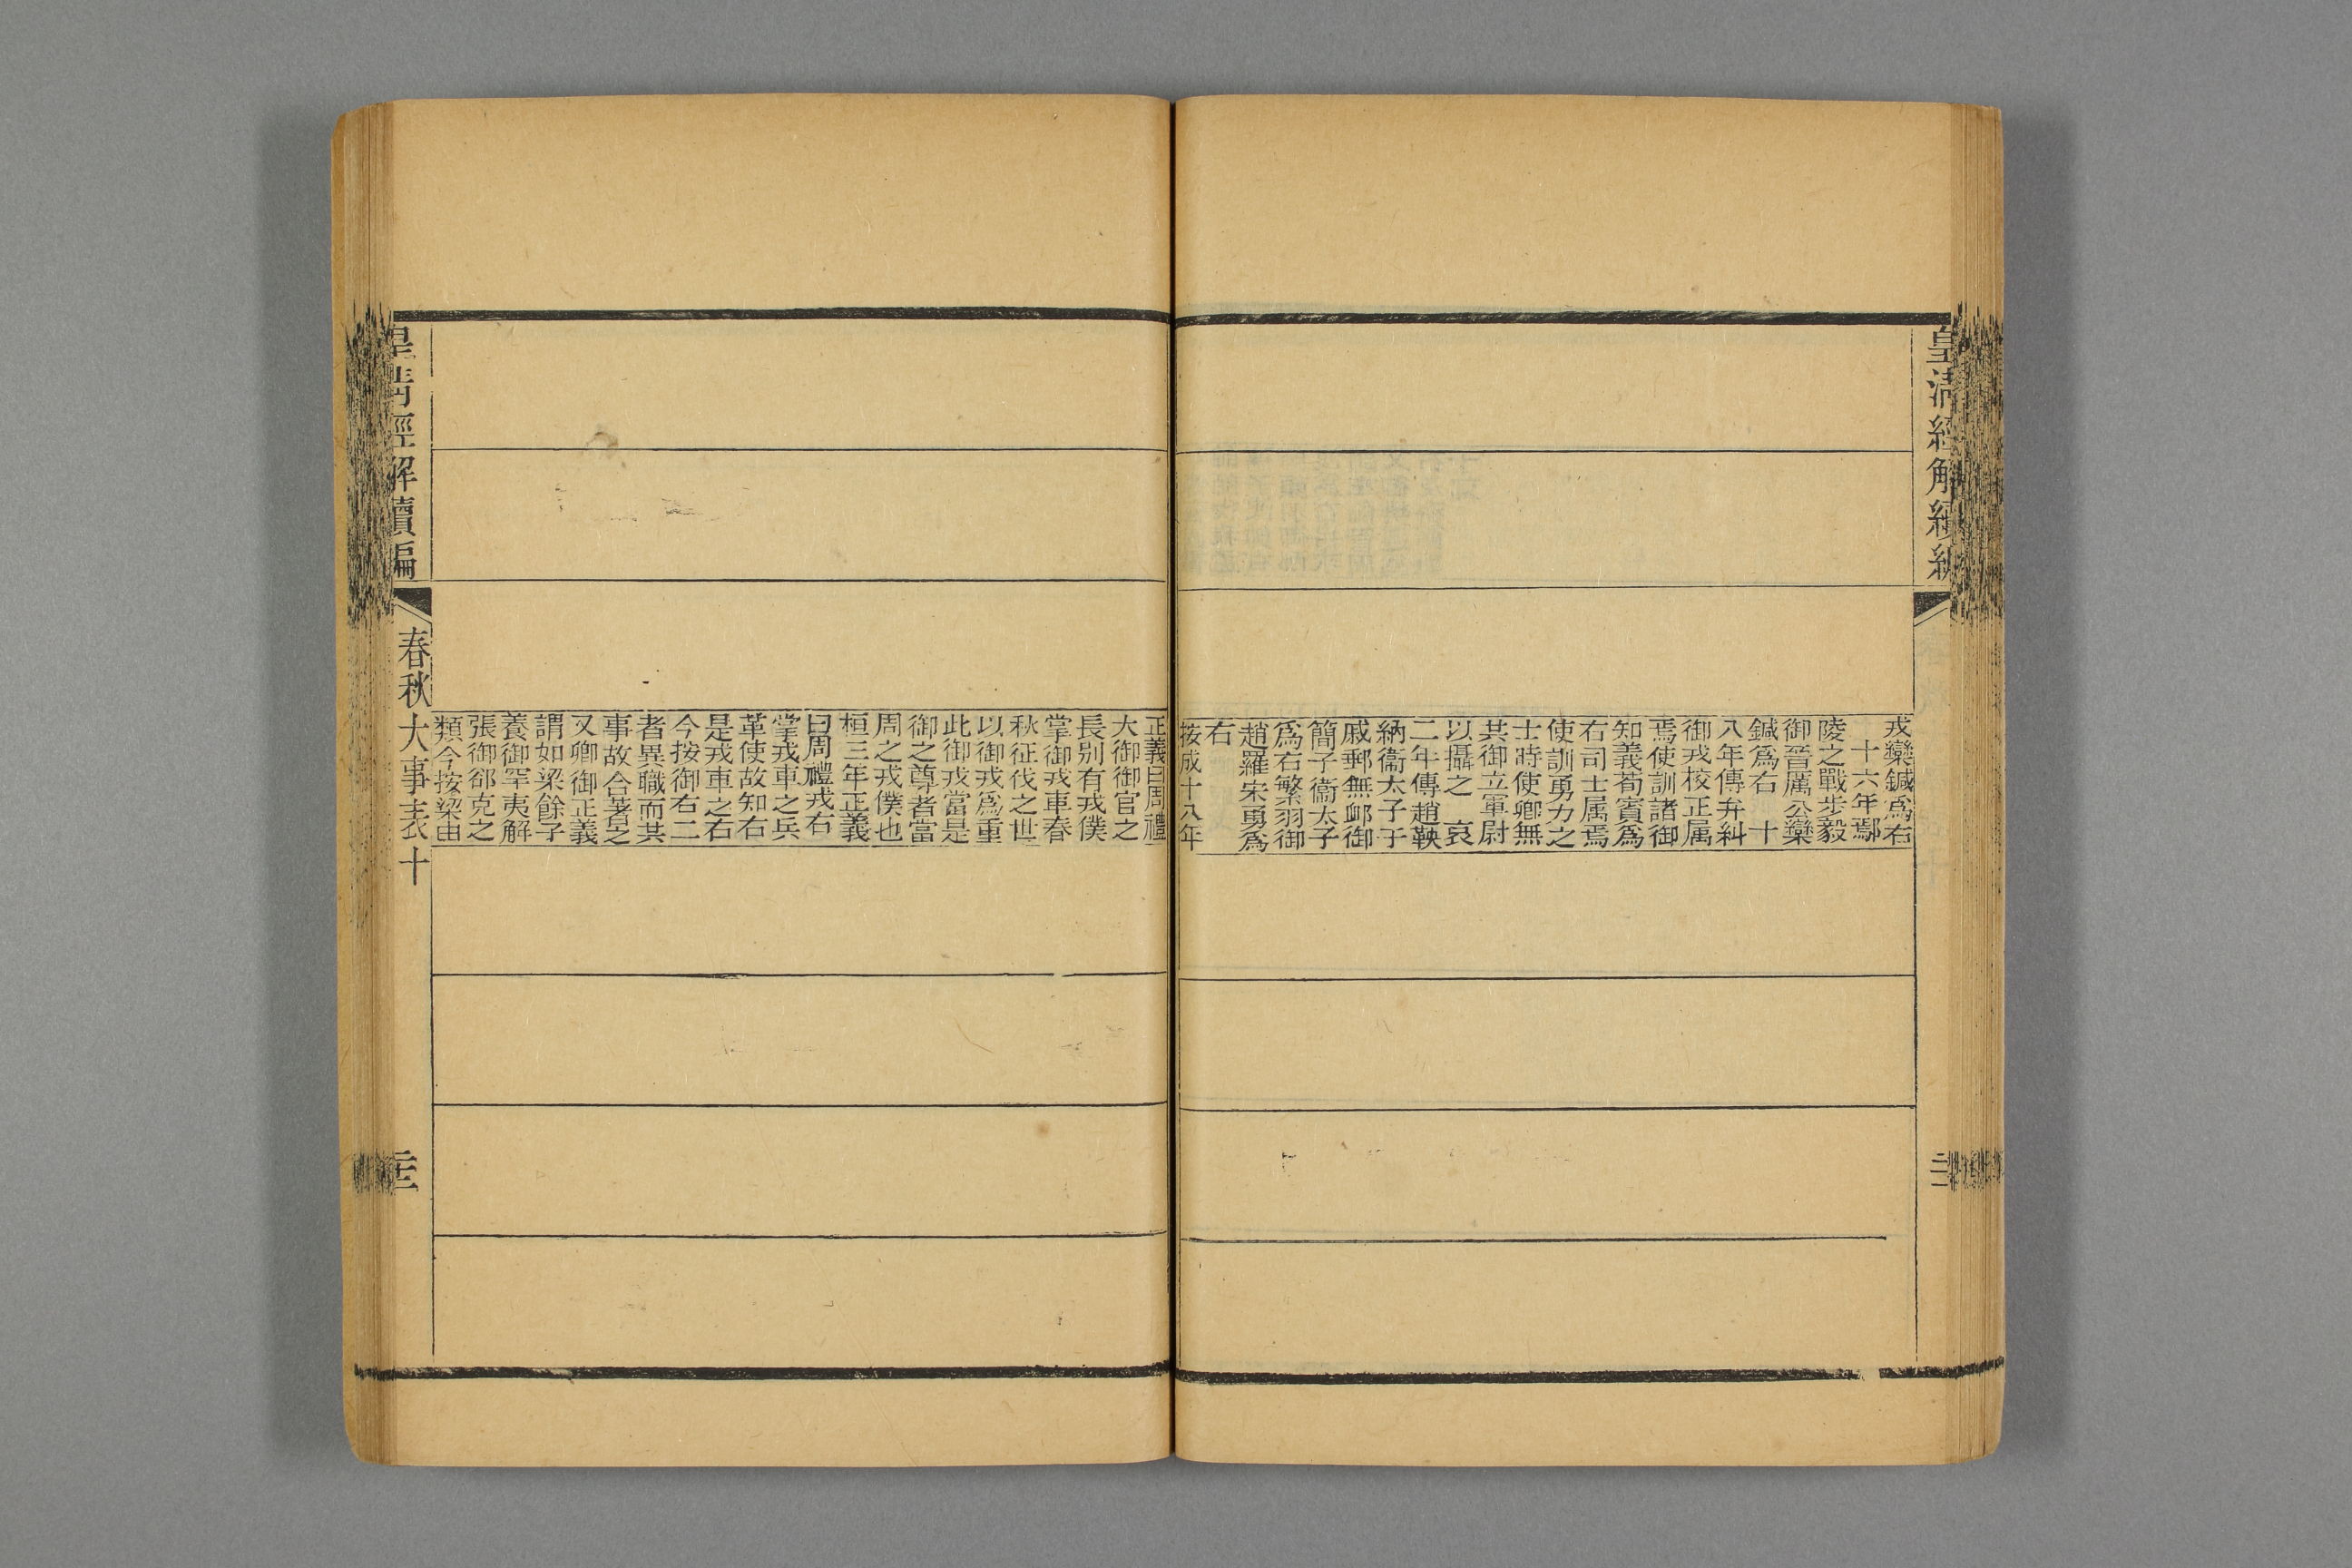 皇清經解續編
戎欒鍼爲右
十六年鄢
陵之戰步毅
御晉厲公欒
鍼爲右　十
八年傳弁糾
御戎校正属
焉使訓諸御
知義荀賓爲
右司士属焉
使訓勇力之
士時使卿無
其御立軍尉
以攝之　哀
二年傳趙鞅
納衞太子于
戚郵無卹御
簡子衞太子
爲右繁羽御
趙羅宋勇爲
右
按成十八年
正義曰周禮
大御御官之
長別有戎僕
掌御戎車春
秋征伐之世
以御戎爲重
此御戎當是
御之尊者當
周之戎僕也
桓三年正義
曰周禮戎右
掌戎車之兵
革使故知右
是戎車之右
今按御右二
者異職而其
事故合著之
又卿御正義
謂如梁餘子
養御罕夷解
張御郤克之
類今按梁由
皇清經解續編
春秋大事表十